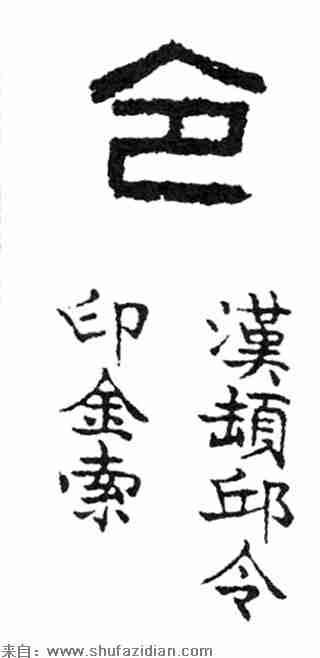 令
漢頓邱令
印金索
来自：www.shufazidian.com